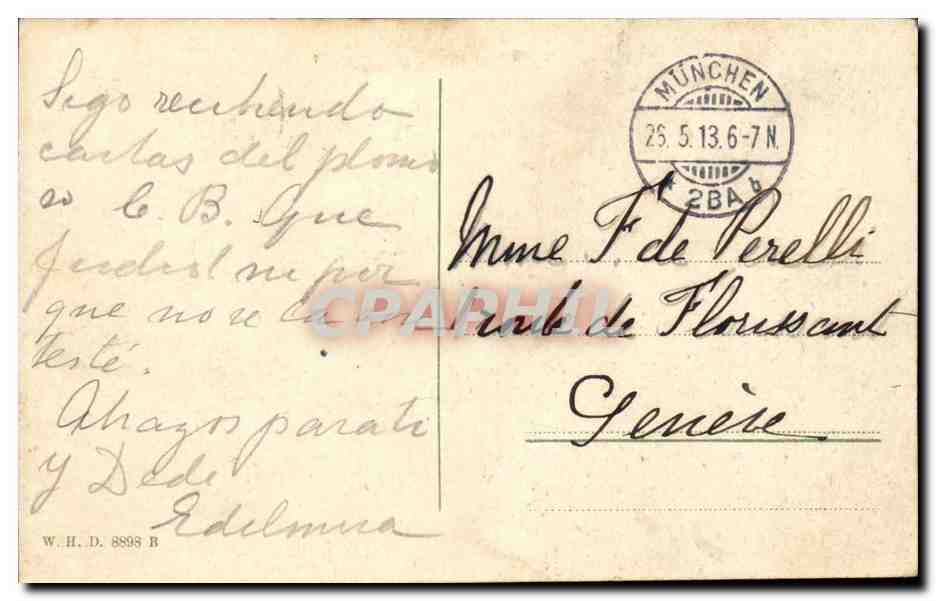 Sigo recibiendo
cartas del plomo
so C. B. Que
ni por
que no se la con
testé.
Abrazos para ti
y Dede
Edelmira
W. H. D. 8898 B
MÜNCHEN
26. 5. 13. 6-7 N.
* 2BA b
Mme F. de Perelli
route de Florissant
Genève
CPAPHIL